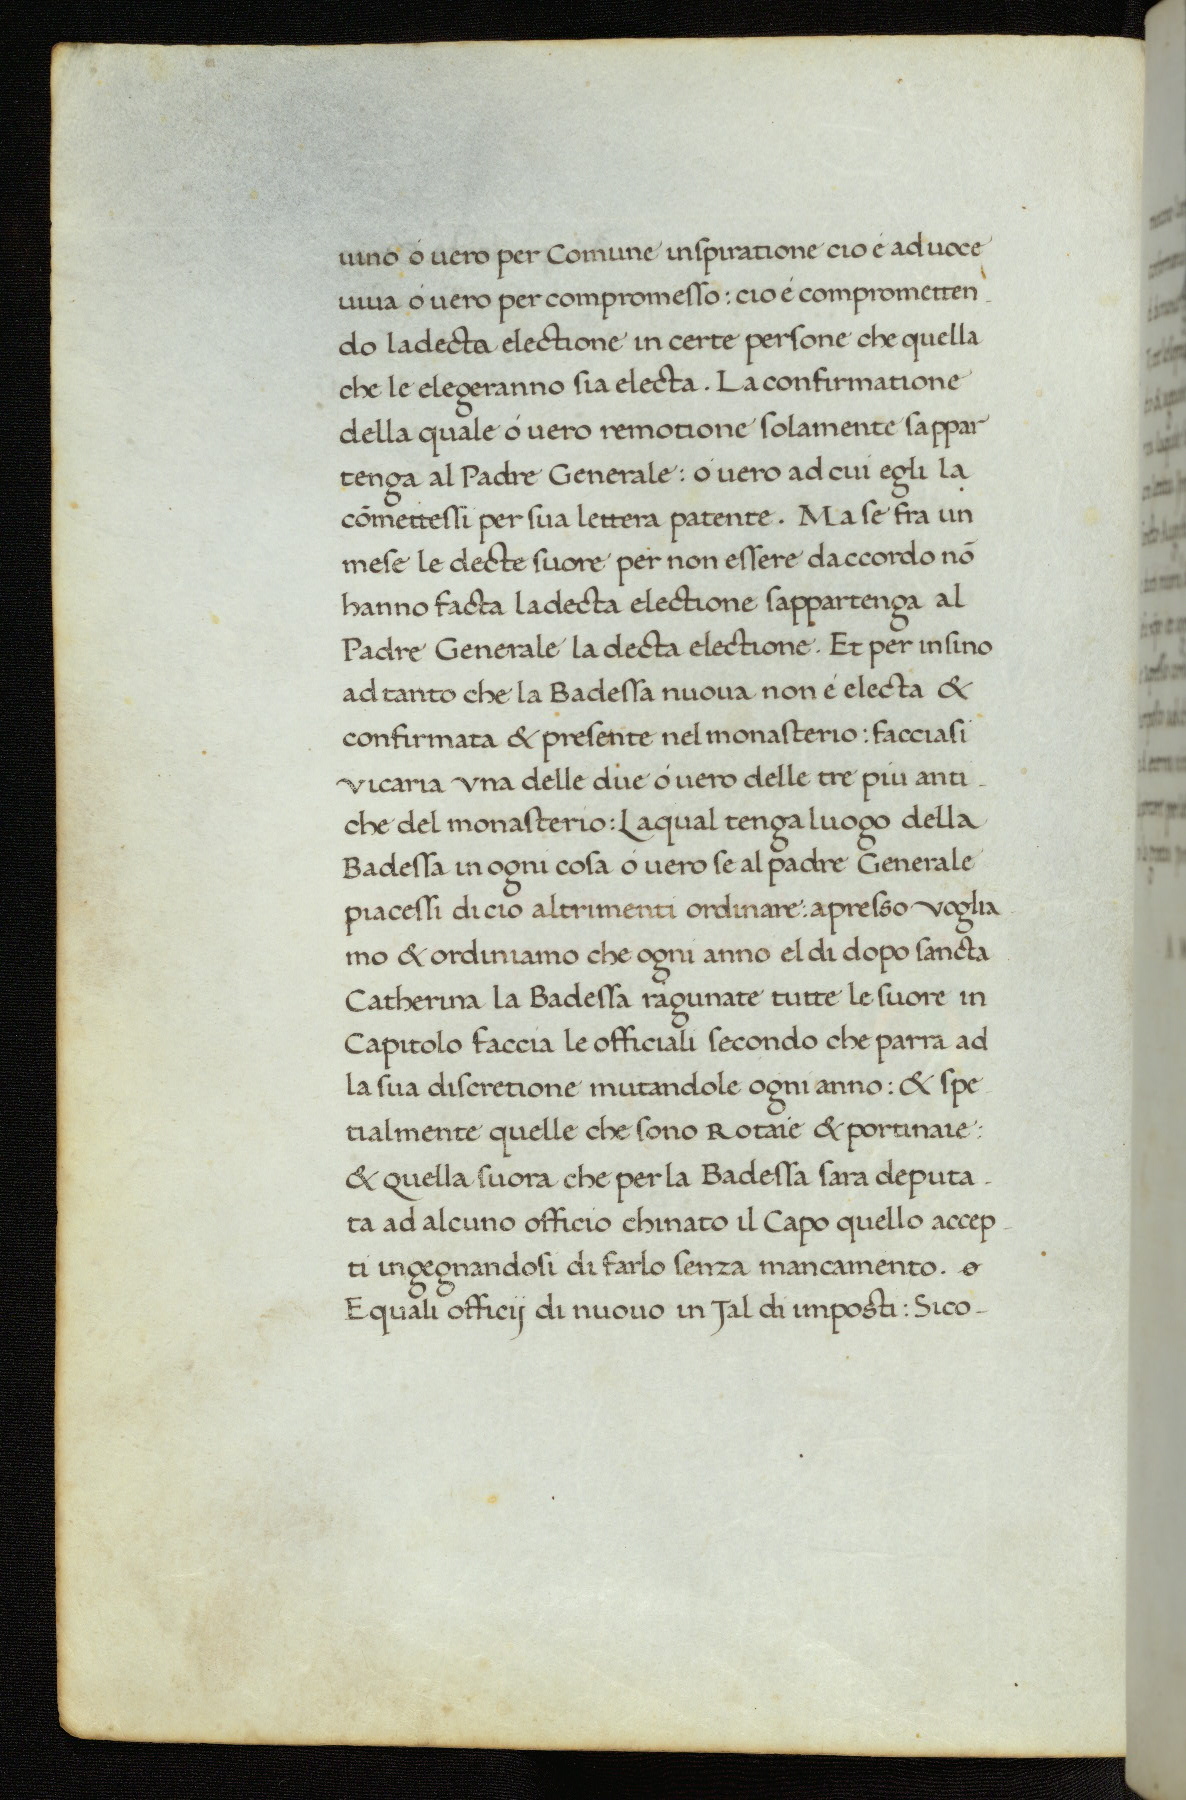 uino o uero per Comune inspiratione cio é ad uoce
uiua o uero per compromesso: cio é compromitten-
do la decta electione in certe persone che quella
che le elegeranno sia electa. La confirmatione
della quale o uero remotione solamente sappar
tenga al Padre Generale: o uero ad cui egli la
cōmettessi per sua lettera patente. Ma se fra un
mese le decte suore per non essere daccordo nō
hanno facta la decta electione sappartenga al
Padre Generale la decta electione. Et per insino
ad tanto che la Badessa nuoua non é electa &
confirmata & presente nel monasterio: facciasi
vicaria vna delle due o uero delle tre piu anti-
che del monasterio: Laqual tenga luogo della
Badessa in ogni cosa o uero se al padre Generale
piacessi di cio altrimenti ordinare: apresso voglia
mo & ordiniamo che ogni anno el di dopo sancta
Catherina la Badessa ragunate tutte le suore in
Capitolo faccia le officiali secondo che parra ad
la sua discretione mutandole ogni anno: & spe
tialmente quelle che sono Rotaie & portinaie:
& quella suora che per la Badessa sara deputa-
ta ad alcuno officio chinato il Capo quello accep-
ti ingegnandosi di farlo senza mancamento.
E quali officij di nuouo in Tal di imposti: Sico-